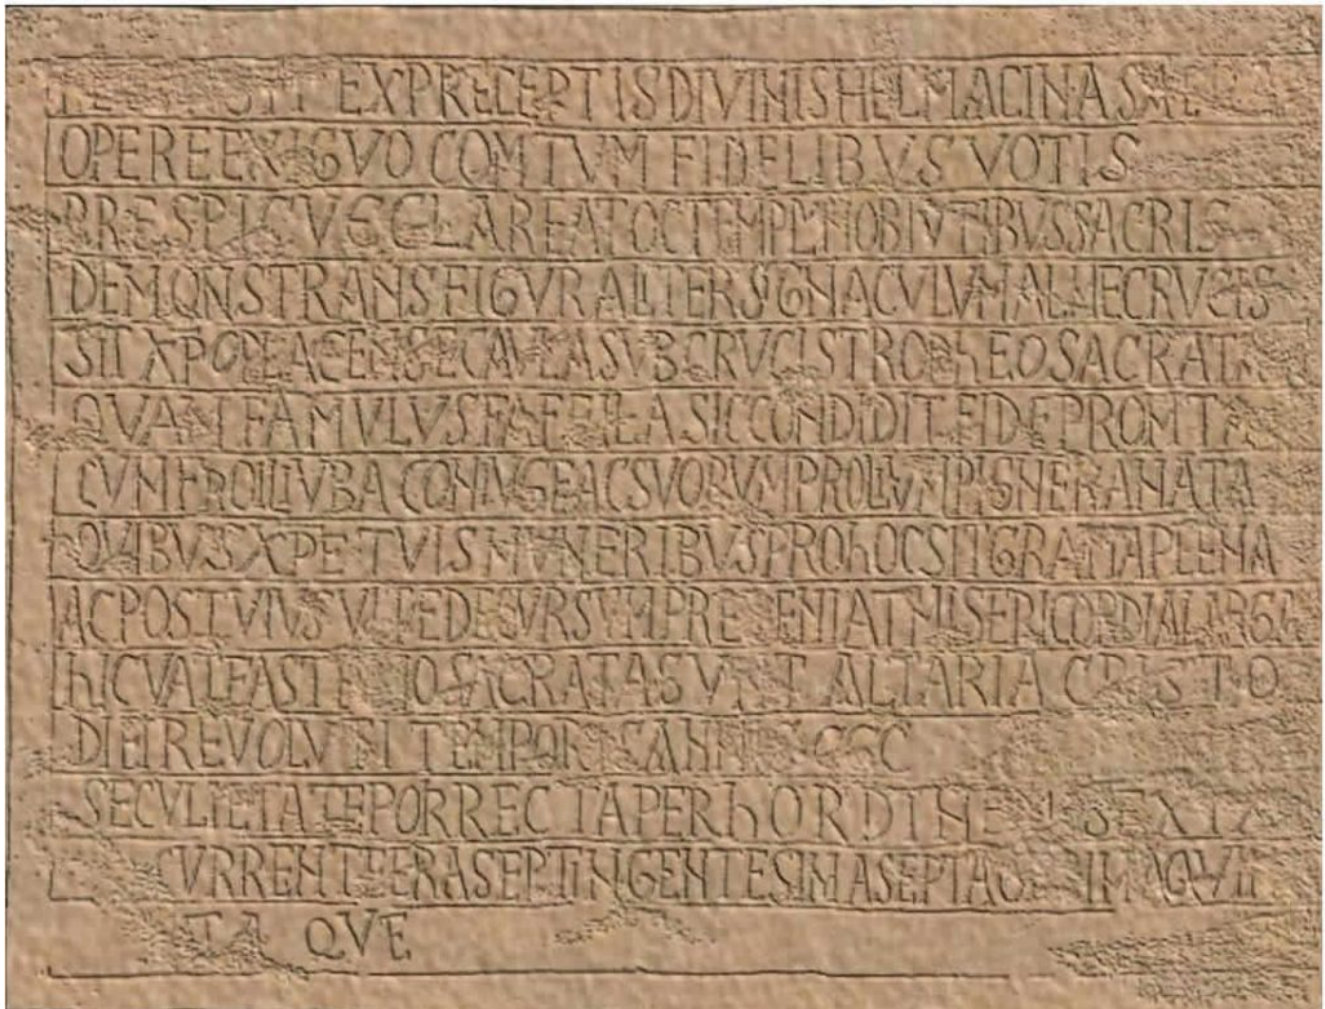 EX PRECEPTIS DIVINIS HEC MACINA
OPERE EXIGVO COMTVM FIDELIBVS VOTIS
PRESPICVE CLAREAT OC TEMPLVM OBTVTIBVS SACRIS
DEMONSTRANS FIGVRALITER SIGNACVLVM ALME CRVCIS
SIT XPO PLACENS EC AVLA SVB CRVCIS TROPHEO SACRATA
QVAM FAMVLVS FAFFILA SIC CONDIDIT FIDE PROMTA
CVM FROILIVBA CONIVGE AC SVORVM PROLIVM PIGNERA NATA
QVIBVS XPE TVIS MVNERIBVS PRO hOC SIT GRATIA PLENA
AC POST VIVS VITE DECVRSVM PREVENIAT MISERICORDIA LARGA
hIC SACRATA SVNT ALTARIA CRISTO
DIEI REVOLVTI TEMPORIS ANNIS CCC
SECVLI ETATE PORRECTA PER hORDINEM SEXTA
CVRRENTE ERA SEPTINGENTESIMA SEPTAGESIMA QVIN
TAQVE